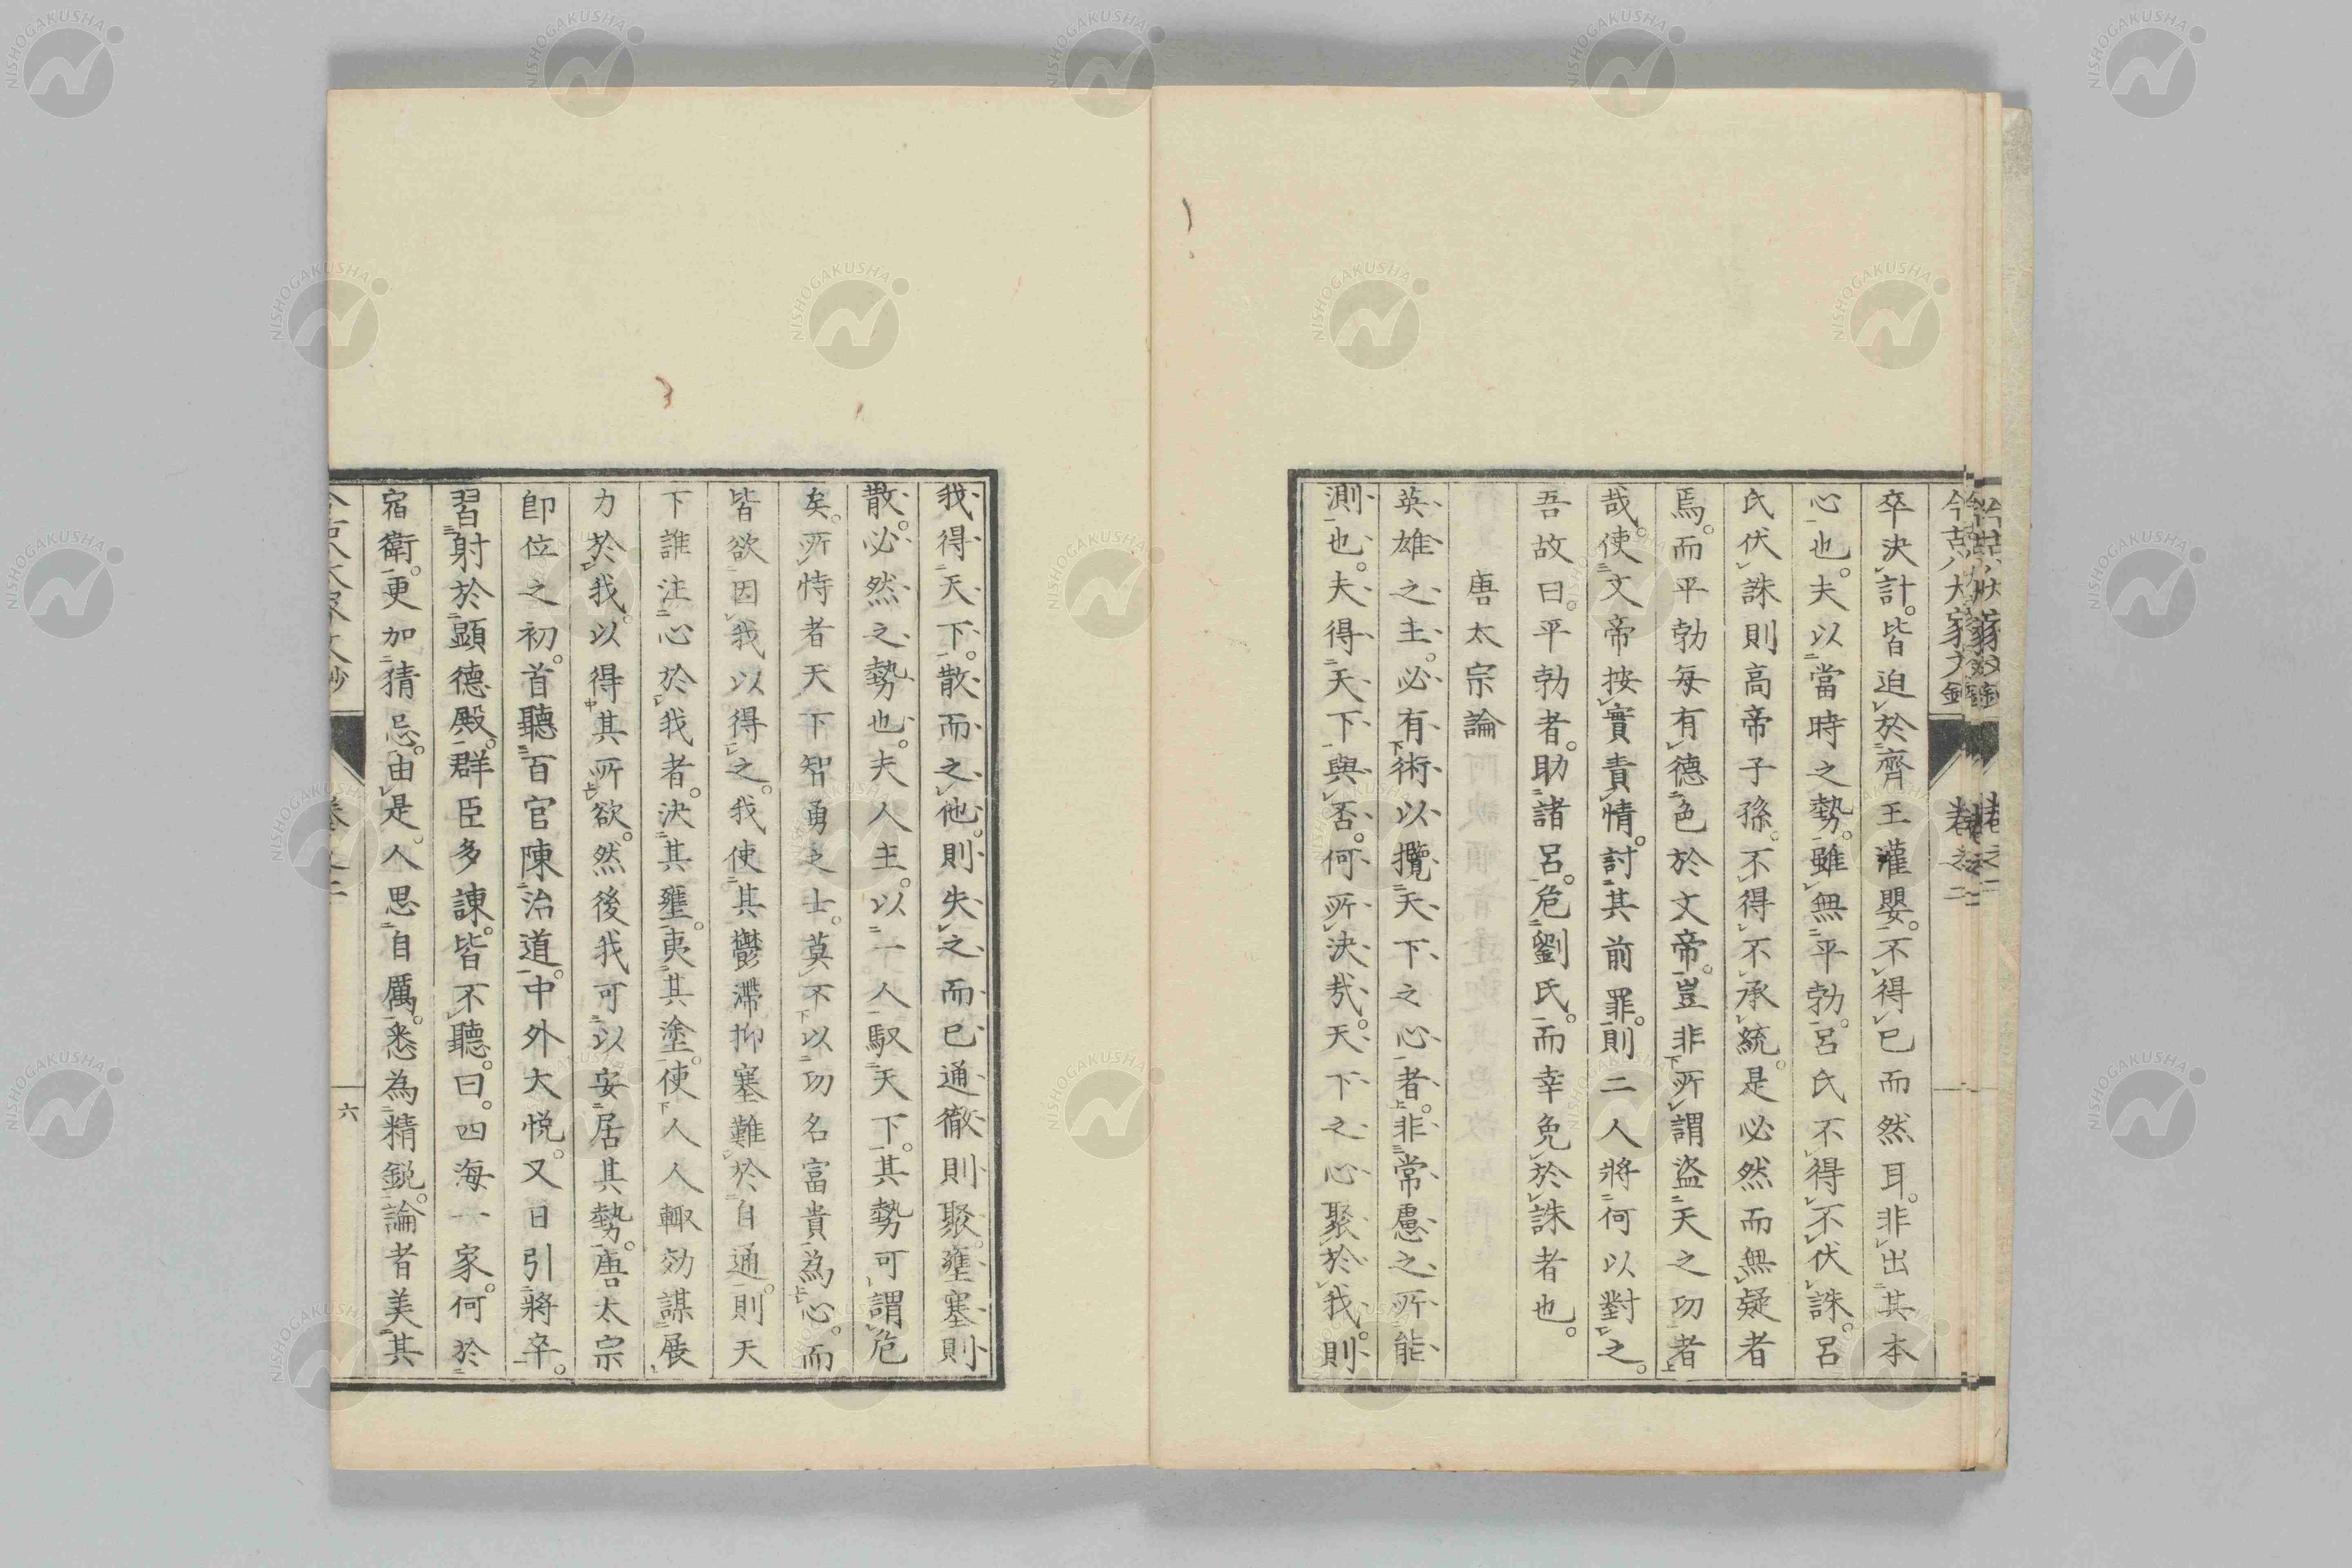 卒決計。皆迫於齊王灌嬰。不得已而然耳。非出其本
心也。夫以當時之勢。雖無平勃。呂氏不得不伏誅。呂
氏伏誅則高帝子孫。不得不承統。是必然而無疑者
焉。而平勃每有德色於文帝。豈非所謂盜天之功者
哉。使文帝按實責情。討其前罪。則二人將何以對之。
吾故曰。平勃者。助諸呂。危劉氏。而幸免於誅者也。
唐太宗論
英雄之主。必有術以攬天下之心者。非常慮之所能
測也。夫得天下與否。何所決哉。天下之心聚於我。則
我得天下。散而之他。則失之而已通徹則聚壅塞則
散。必然之勢也。夫人主。以一人馭天下。其勢可謂危
矣。所恃者天下智勇之士。莫不以功名富貴為心。而
皆欲因我以得之。我使其鬱滯抑塞難於自通。則天
下誰注心於我者。決其壅。夷其塗。使人人輙効謀展
力於我。以得其所欲。然後我可以安居其勢。唐太宗
即位之初。首聽百官陳治道。中外大悅。又日引將卒。
習射於顯德殿。群臣多諫。皆不聽。曰。四海一家。何於
宿衛。更加猜忌。由是。人思自厲。悉為精銳。論者美其
卷之二
六
NISHOGAKUSHA